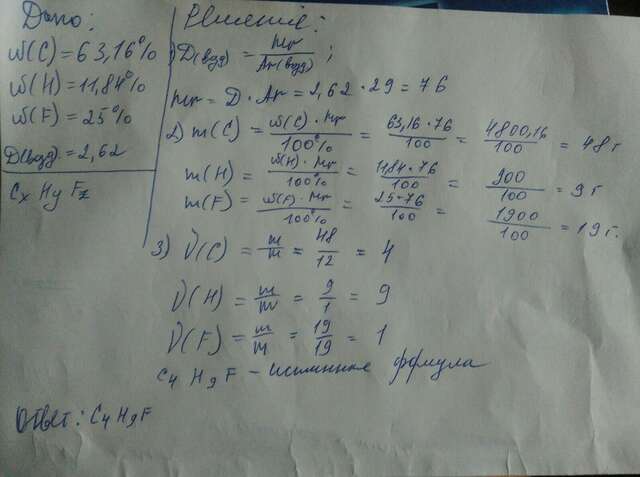 Дано:
ω(C)=63,16%
ω(H)=11,84%
ω(F)=25%
D(возд)=2,62
Cx Hy Fz
Решение:
1) D(возд) = Mr/Ar(возд) ;
Mr = D · Ar = 2,62 · 29 = 76
2) m(C) = ω(C) · Mr/100% = 63,16 · 76/100 = 4800,16/100 = 48 г
m(H) = ω(H) · Mr/100% = 11,84 · 76/100 = 900/100 = 9 г
m(F) = ω(F) · Mr/100% = 25 · 76/100 = 1900/100 = 19 г.
3) ν(C) = m/m = 48/12 = 4
ν(H) = m/m = 9/1 = 9
ν(F) = m/M = 19/19 = 1
C4 H9 F – истинная формула
Ответ: C4H9F